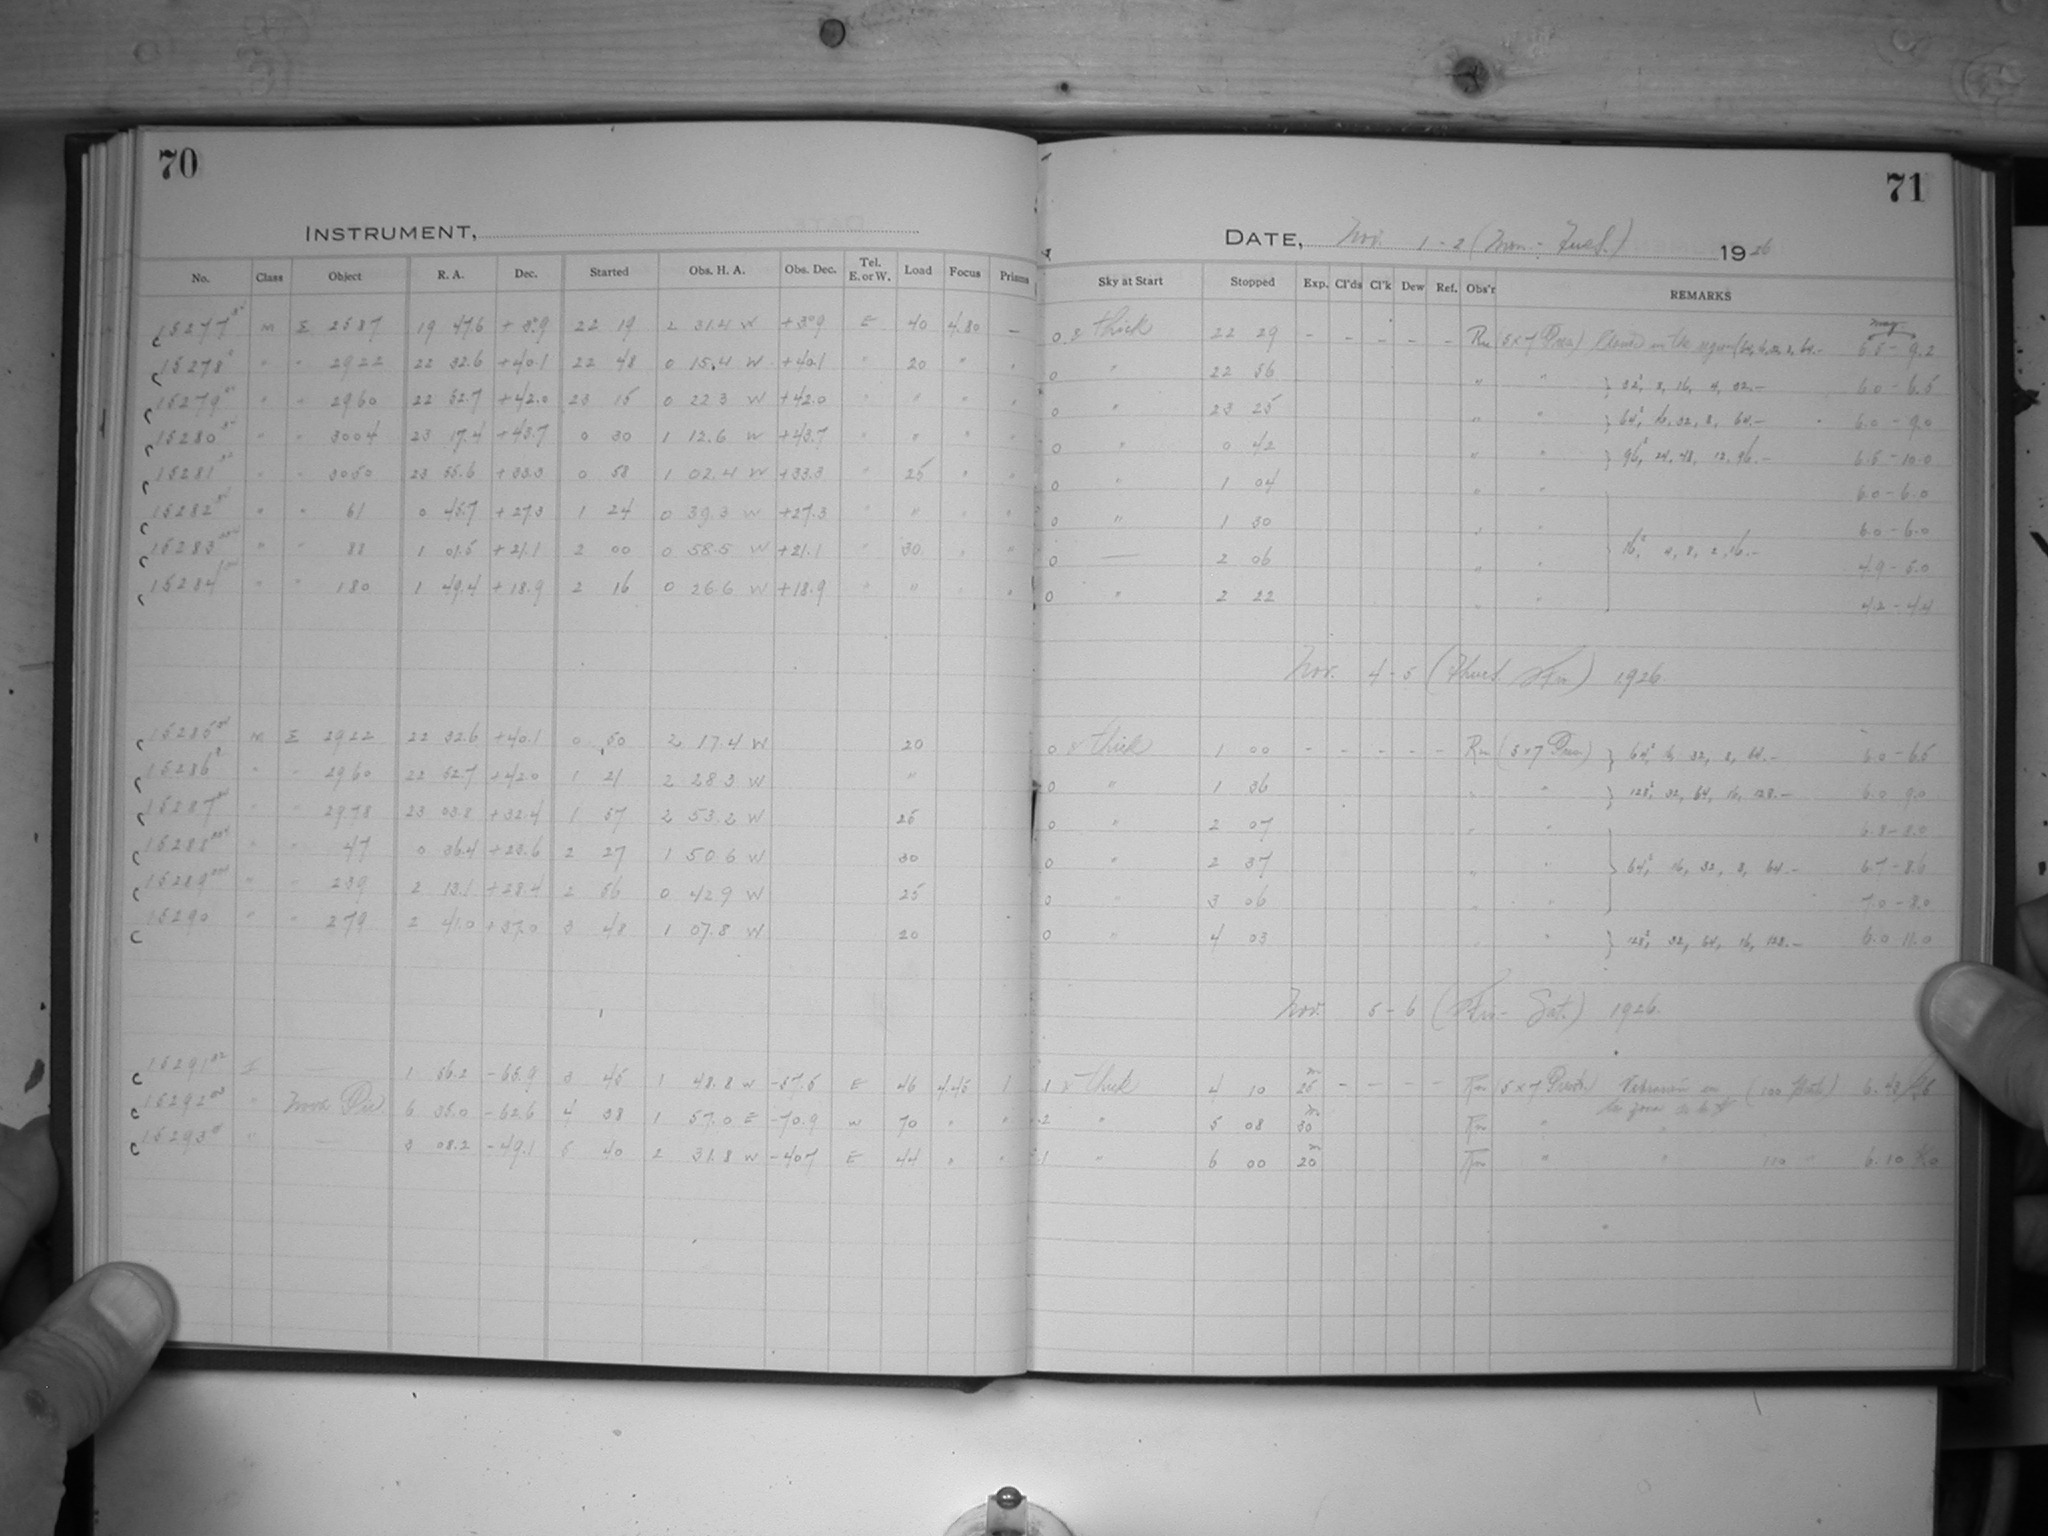 70
INSTRUMENT,
No. Class Object R. A. Dec. Started Obs. H. A. Obs. Dec. Tel. E. or W. Load Focus Prisms
15277 M Σ 2587 19 47.6 + 3.9 22 19 2 31.4 W +3.9 E 40 4.80 —
15278 " " 2922 22 32.6 +40.1 22 48 0 15.4 W +40.1 20 " "
15279 " " 2960 22 52.7 +42.0 23 15 0 22.3 W +42.0 " " " "
15280 " " 3004 23 17.4 +43.7 0 30 1 12.6 W +43.7 " " " "
15281 " " 3050 23 55.6 +33.3 0 58 1 02.4 W +33.3 " 25 " "
15282 " " 61 0 45.7 +27.3 1 24 0 39.3 W +27.3 " " " "
15283 " " 88 1 01.5 +21.1 2 00 0 58.5 W +21.1 " 30 " "
15284 " " 180 1 49.4 +18.9 2 16 0 26.6 W +18.9 " "
15285 M Σ 2922 22 32.6 +40.1 0 50 2 17.4 W 20
15286 " " 2960 22 52.7 +42.0 1 21 2 28.3 W "
15287 " " 2978 23 03.8 +32.4 1 57 2 53.2 W 25
15288 " " 47 0 36.4 +23.6 2 27 1 50.6 W 30
15289 " " 239 2 13.1 +28.4 2 56 0 42.9 W 25
15290 " " 279 2 41.0 +37.0 3 48 1 07.8 W 20
15291 I — 1 56.2 -65.9 3 45 1 48.8 W -57.5 E 46 4.45 1
15292 " 6 35.0 -62.6 4 38 1 57.0 E -70.9 W 70 " "
15293 " — 3 08.2 -49.1 5 40 2 31.8 W -40.7 E 44 " "
71
DATE, Nov. 1 - 2 (Mon - Tues.) 1926
Sky at Start Stopped Exp. Cl'ds Cl'k Dew Ref. Obs'r REMARKS
0 thick 22 29 - - - - - Rn (5x7 5.5 - 9.2
0 " 22 56 " " } 32, 8, 16, 4, 32.— 6.0 - 6.5
0 " 23 25 " " } 64, 16, 32, 8, 64.— 6.0 - 9.0
0 " 0 42 " " } 96, 24, 48, 12, 96.— 6.5 - 10.0
0 " 1 04 " " 6.0 - 6.0
0 " 1 30 " " 6.0 - 6.0
0 — 2 06 " " } 16, 4, 8, 2, 16.— 4.9 - 5.0
0 " 2 22 " " 4.2 - 4.4
Nov. 4 - 5 (Thurs. Fri) 1926
0 thick 1 00 - - - - - Rn (5x7 } 64, 16, 32, 8, 64.— 6.0 - 6.5
0 " 1 36 " " } 128, 32, 64, 16, 128.— 6.0 9.0
0 " 2 07 " " 6.8 - 8.0
0 " 2 37 " " } 64, 16, 32, 8, 64.— 6.7 - 8.6
0 " 3 06 " " 7.0 - 8.0
0 " 4 03 " " } 128, 32, 64, 16, 128.— 6.0 11.0
Nov. 5 - 6 (Fri - Sat.) 1926
1 thick 4 10 25m - - - - (5x7 6.43
2 " 5 08 30m "
1 " 6 00 20m " " 110 " 6.10 K0